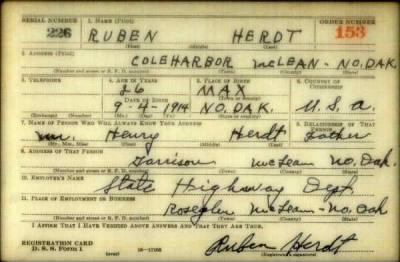 SERIAL NUMBER 1. NAME (Print) ORDER NUMBER
226 RUBEN HERDT 153
(First) (Middle) (Last)
2. ADDRESS (Print)
COLEHARBOR McLEAN - NO. DAK.
(Number and street or R. F. D. number) (Town) (County) (State)
3. TELEPHONE 4. AGE IN YEARS 5. PLACE OF BIRTH 6. COUNTRY OF CITIZENSHIP
26 MAX
DATE OF BIRTH
9-4-1914 NO. DAK. U.S.A.
(Exchange) (Number) (Mo.) (Day) (Yr.) (State or country)
7. NAME OF PERSON WHO WILL ALWAYS KNOW YOUR ADDRESS 8. RELATIONSHIP OF THAT PERSON
Mr. Henry Herdt Father
(Mr., Mrs., Miss) (First) (Middle) (Last)
9. ADDRESS OF THAT PERSON
Garrison McLean No. Dak.
(Number and street or R. F. D. number) (Town) (County) (State)
10. EMPLOYER'S NAME
State Highway Dept.
11. PLACE OF EMPLOYMENT OR BUSINESS
Roseglen McLean - No. Dak
(Number and street or R. F. D. number) (Town) (County) (State)
I AFFIRM THAT I HAVE VERIFIED ABOVE ANSWERS AND THAT THEY ARE TRUE.
REGISTRATION CARD
D. S. S. Form 1 (over) Ruben Herdt
(Registrant's signature)